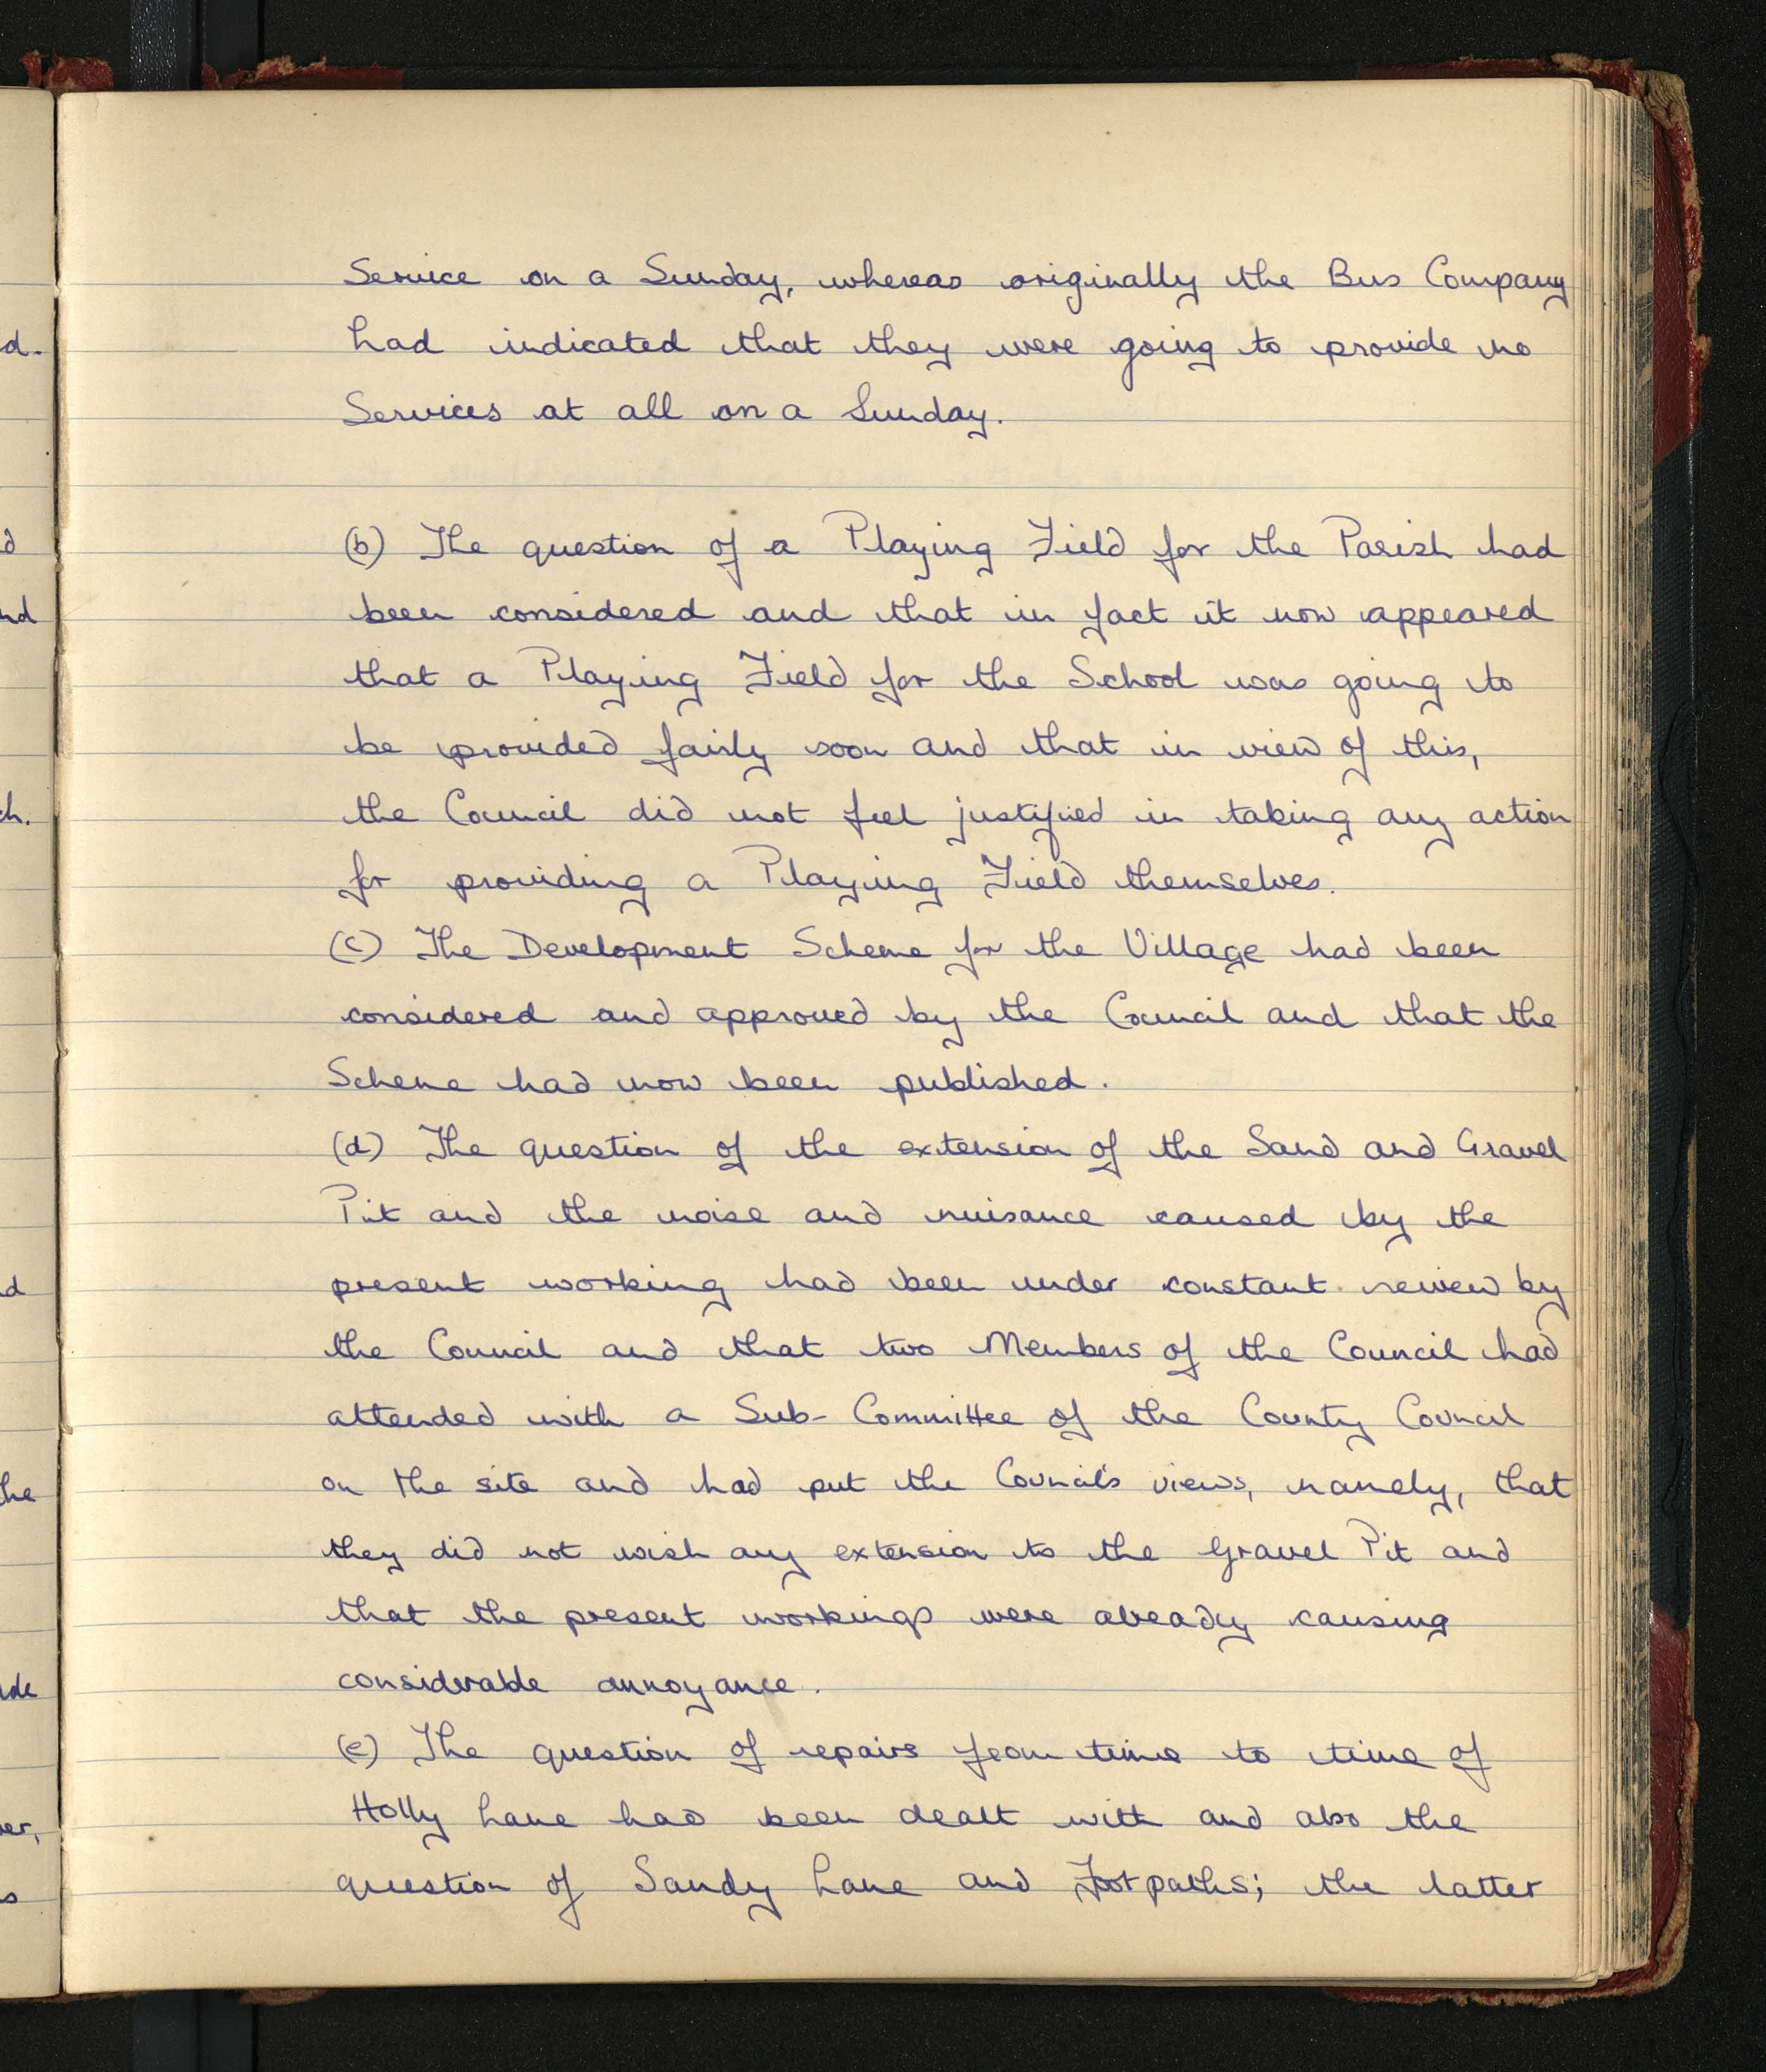 Service on a Sunday, whereas originally the Bus Company
had indicated that they were going to provide no
Services at all on a Sunday.
(b) The question of a Playing Field for the Parish had
been considered and that in fact it now appeared
that a Playing Field for the School was going to
be provided fairly soon and that in view of this,
the Council did not feel justified in taking any action
for providing a Playing Field themselves.
(c) The Development Scheme for the Village had been
considered and approved by the Council and that the
Scheme had now been published.
(d) The question of the extension of the Sand and Gravel
Pit and the noise and nuisance caused by the
present working had been under constant review by
the Council and that two Members of the Council had
attended with a Sub-Committee of the County Council
on the site and had put the Council's views, namely, that
they did not wish any extension to the Gravel Pit and
that the present workings were already causing
considerable annoyance.
(e) The question of repairs from time to time of
Holly Lane had been dealt with and also the
question of Sandy Lane and Footpaths; the latter